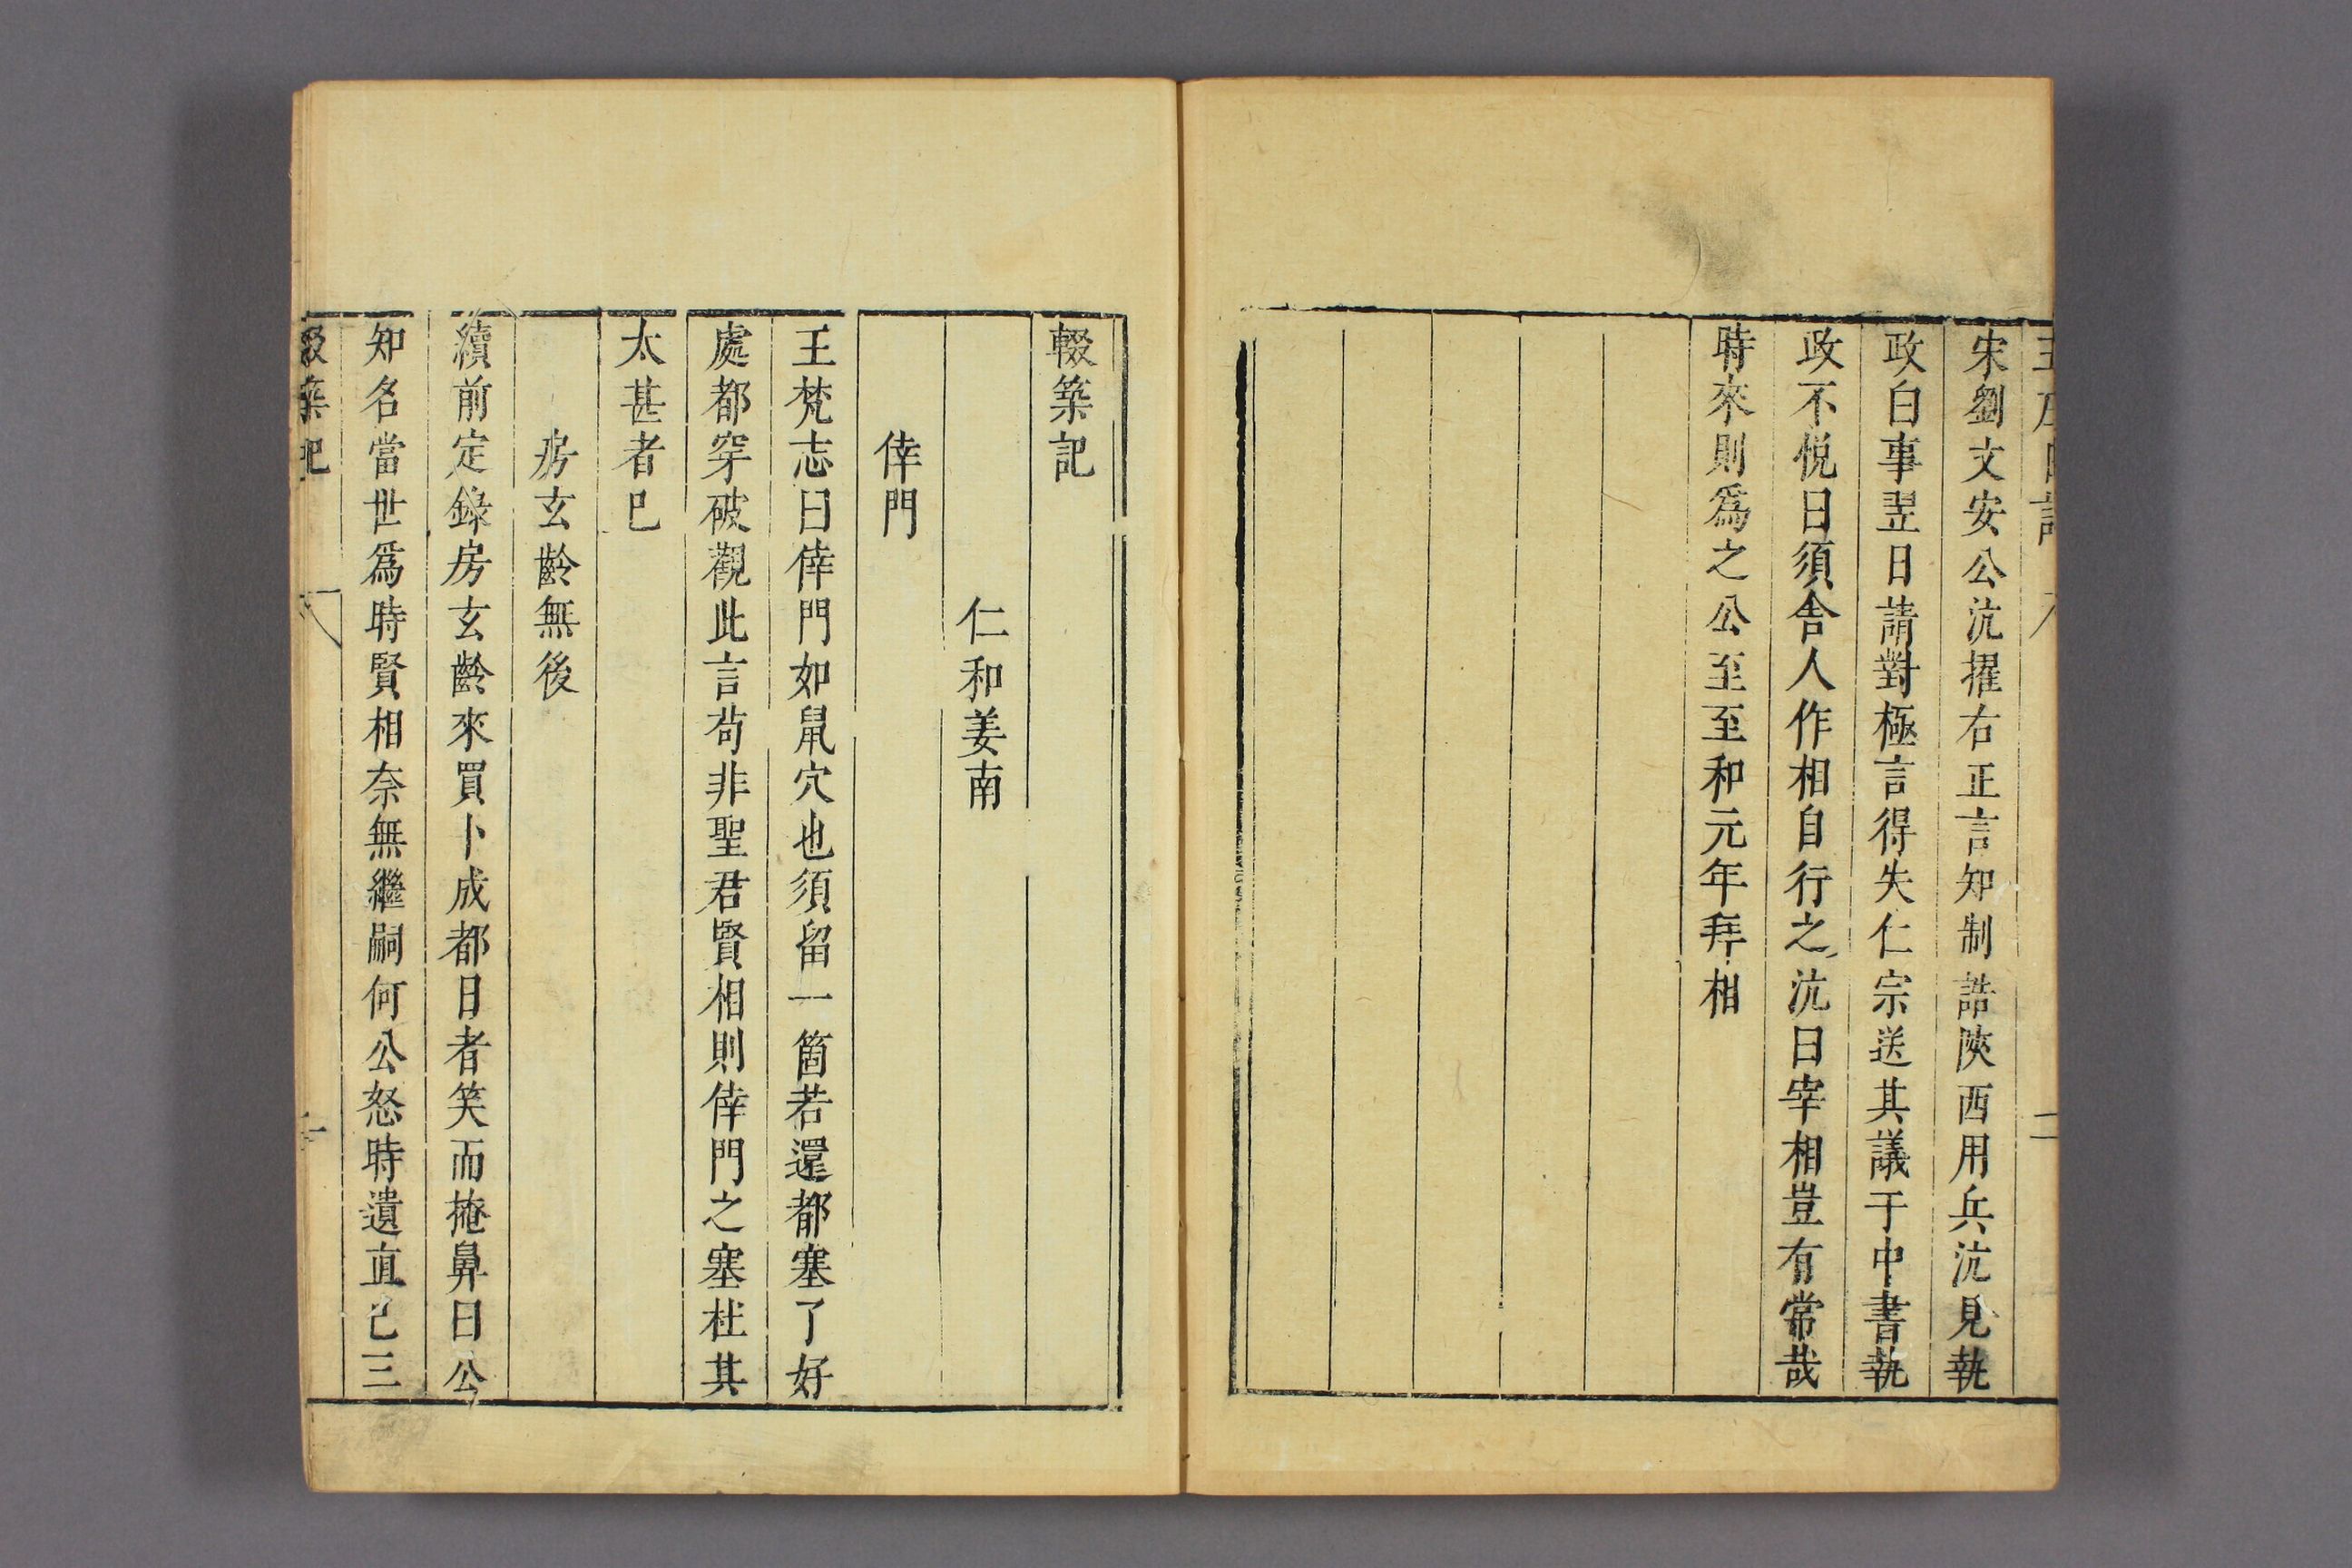 宋劉文安公沆擢右正言知制誥陝西用兵沆見執
政白事翌日請對極言得失仁宗送其議于中書執
政不悅曰須舍人作相自行之沆曰宰相豈有常哉
時來則爲之公至至和元年拜相
輟築記
仁和姜南
倖門
王梵志曰倖門如鼠穴也須留一箇若還都塞了好
處都穿破觀此言苟非聖君賢相則倖門之塞杜其
太甚者巳
房玄齡無後
續前定錄房玄齡來買卜成都日者笑而掩鼻曰公
知名當世爲時賢相奈無繼嗣何公怒時遺直巳三
輟築記